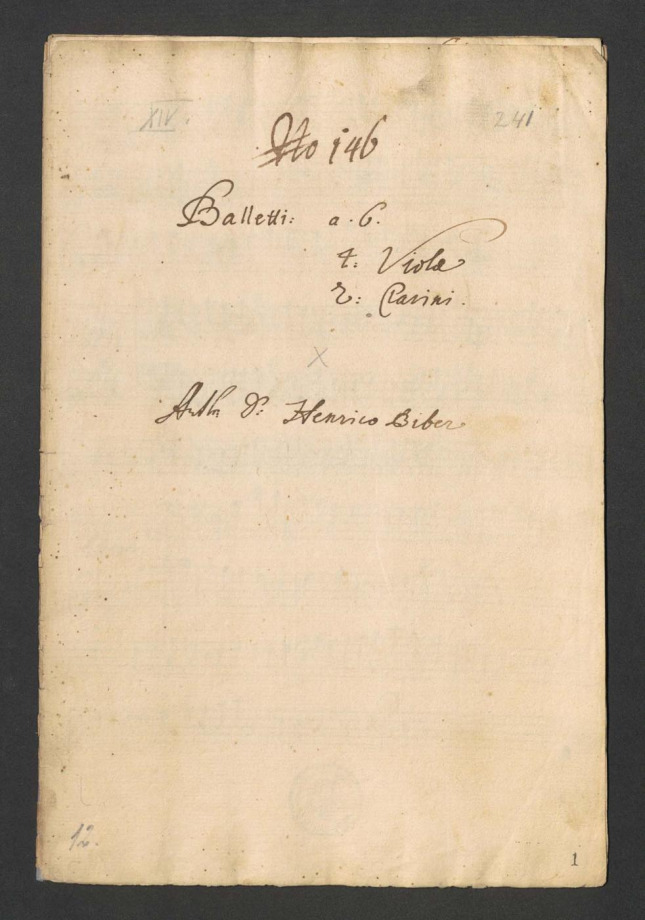 XIV
241
No 146
Balletti: a. 6.
4: Violæ
2: Clarini.
X
Auth D: Henrico Biber
12.
1